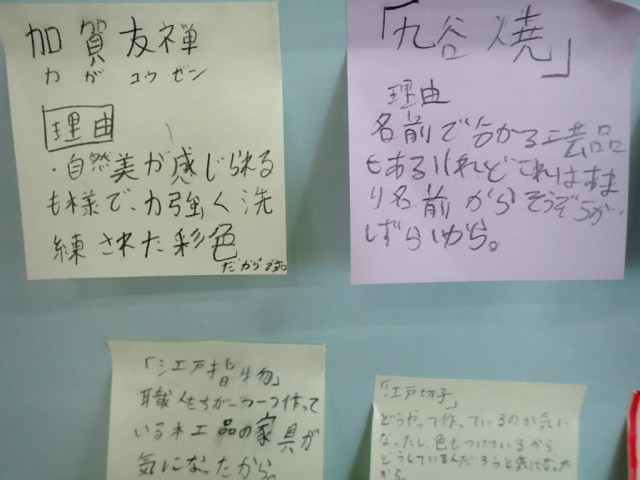 加賀友禅
カガユウゼン
理由
・自然美が感じられる
も様で、力強く洗
練された彩色
だからです。
「九谷焼」
理由
名前で分かる工芸品
もあるけれどこれはあま
り名前からそうぞうが
しずらいから。
「江戸指物」
職人たちが一つ一つ作って
いる木工品の家具が
気になったから。
「江戸切子」
どうやって作っているのか気に
なったし、色もつけているから
どうしているんだろうと気になった
から。